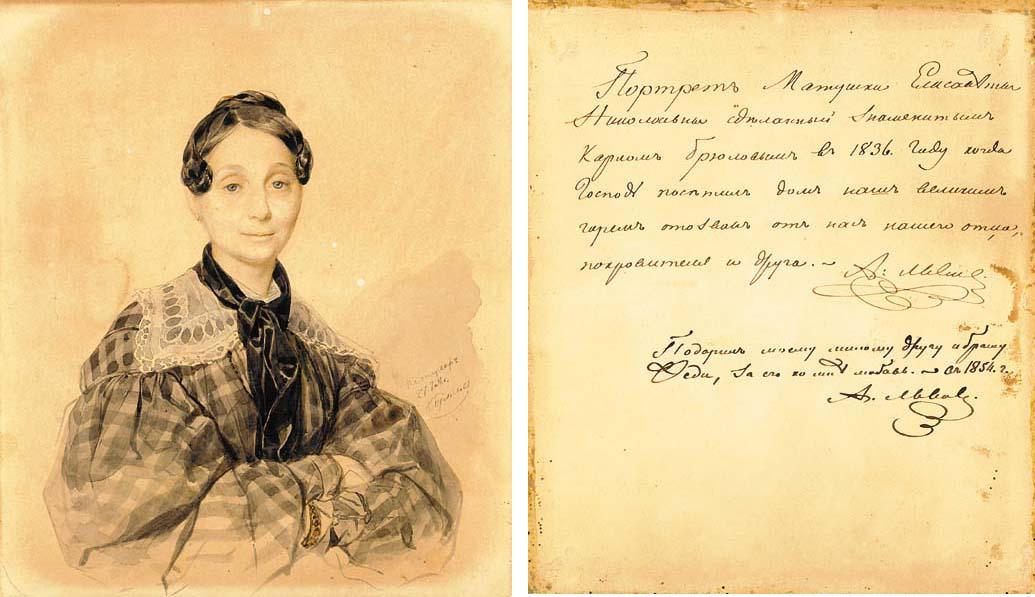 Портретъ Матушки Елисаветы
Николаевны сдѣланный знаменитымъ
Карломъ Брюловымъ въ 1836. Году когда
Господь посѣтилъ домъ нашъ великимъ
горемъ отозвавъ отъ насъ нашего отца,
покровителя и друга. ~
А: Львовъ.
Подарилъ моему милому другу и брату
Феди, за его ко мнѣ любовь. ~ въ 1854. г.
А. Львовъ.